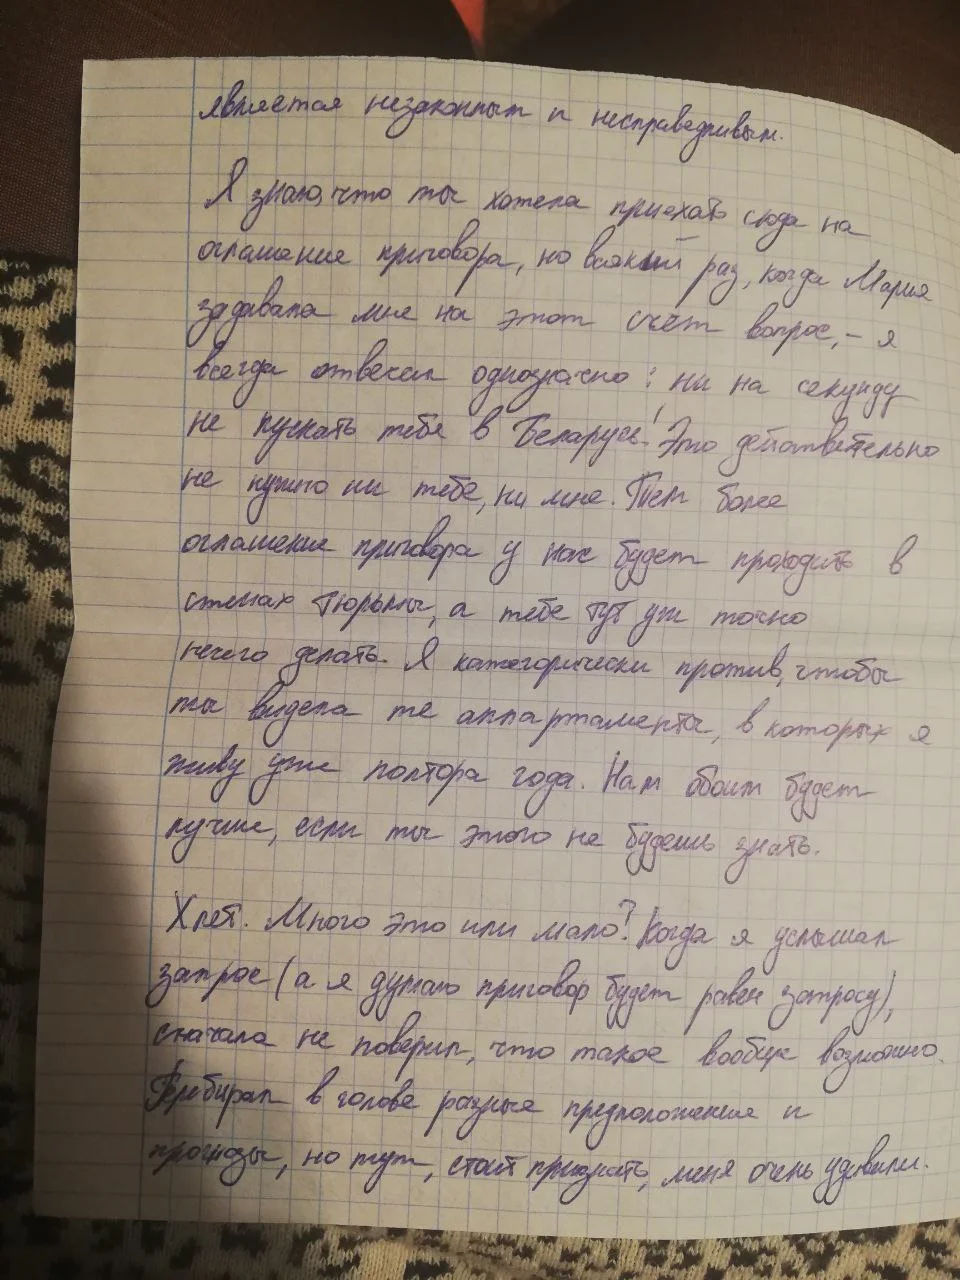 является незаконным и несправедливым.
Я знаю, что ты хотела приехать сюда на
оглашение приговора, но всякий раз, когда Мария
задавала мне на этот счёт вопрос, – я
всегда отвечал однозначно: ни на секунду
не пускать тебя в Беларусь! Это действительно
не нужно ни тебе, ни мне. Тем более
оглашение приговора у нас будет проходить в
стенах тюрьмы, а тебе тут уж точно
нечего делать. Я категорически против, чтобы
ты видела те аппартаменты, в которых я
живу уже полтора года. Нам обоим будет
лучше, если ты этого не будешь знать.
X лет. Много это или мало? Когда я услышал
запрос (а я думаю приговор будет равен запросу),
сначала не поверил, что такое вообще возможно.
Перебирал в голове разные предположения и
прогнозы, но тут, стоит признать, меня очень удивили.